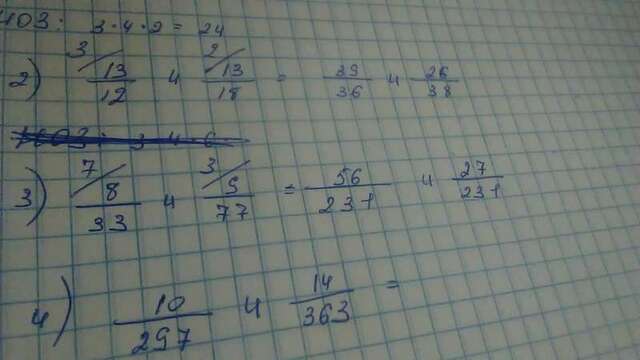 НОЗ: 3·4·2 = 24
2) 3/ 13/12 и 2/ 13/18 = 39/36 и 26/38
3) 7/ 8/33 и 3/ 9/77 = 56/231 и 27/231
4) 10/297 и 14/363 =